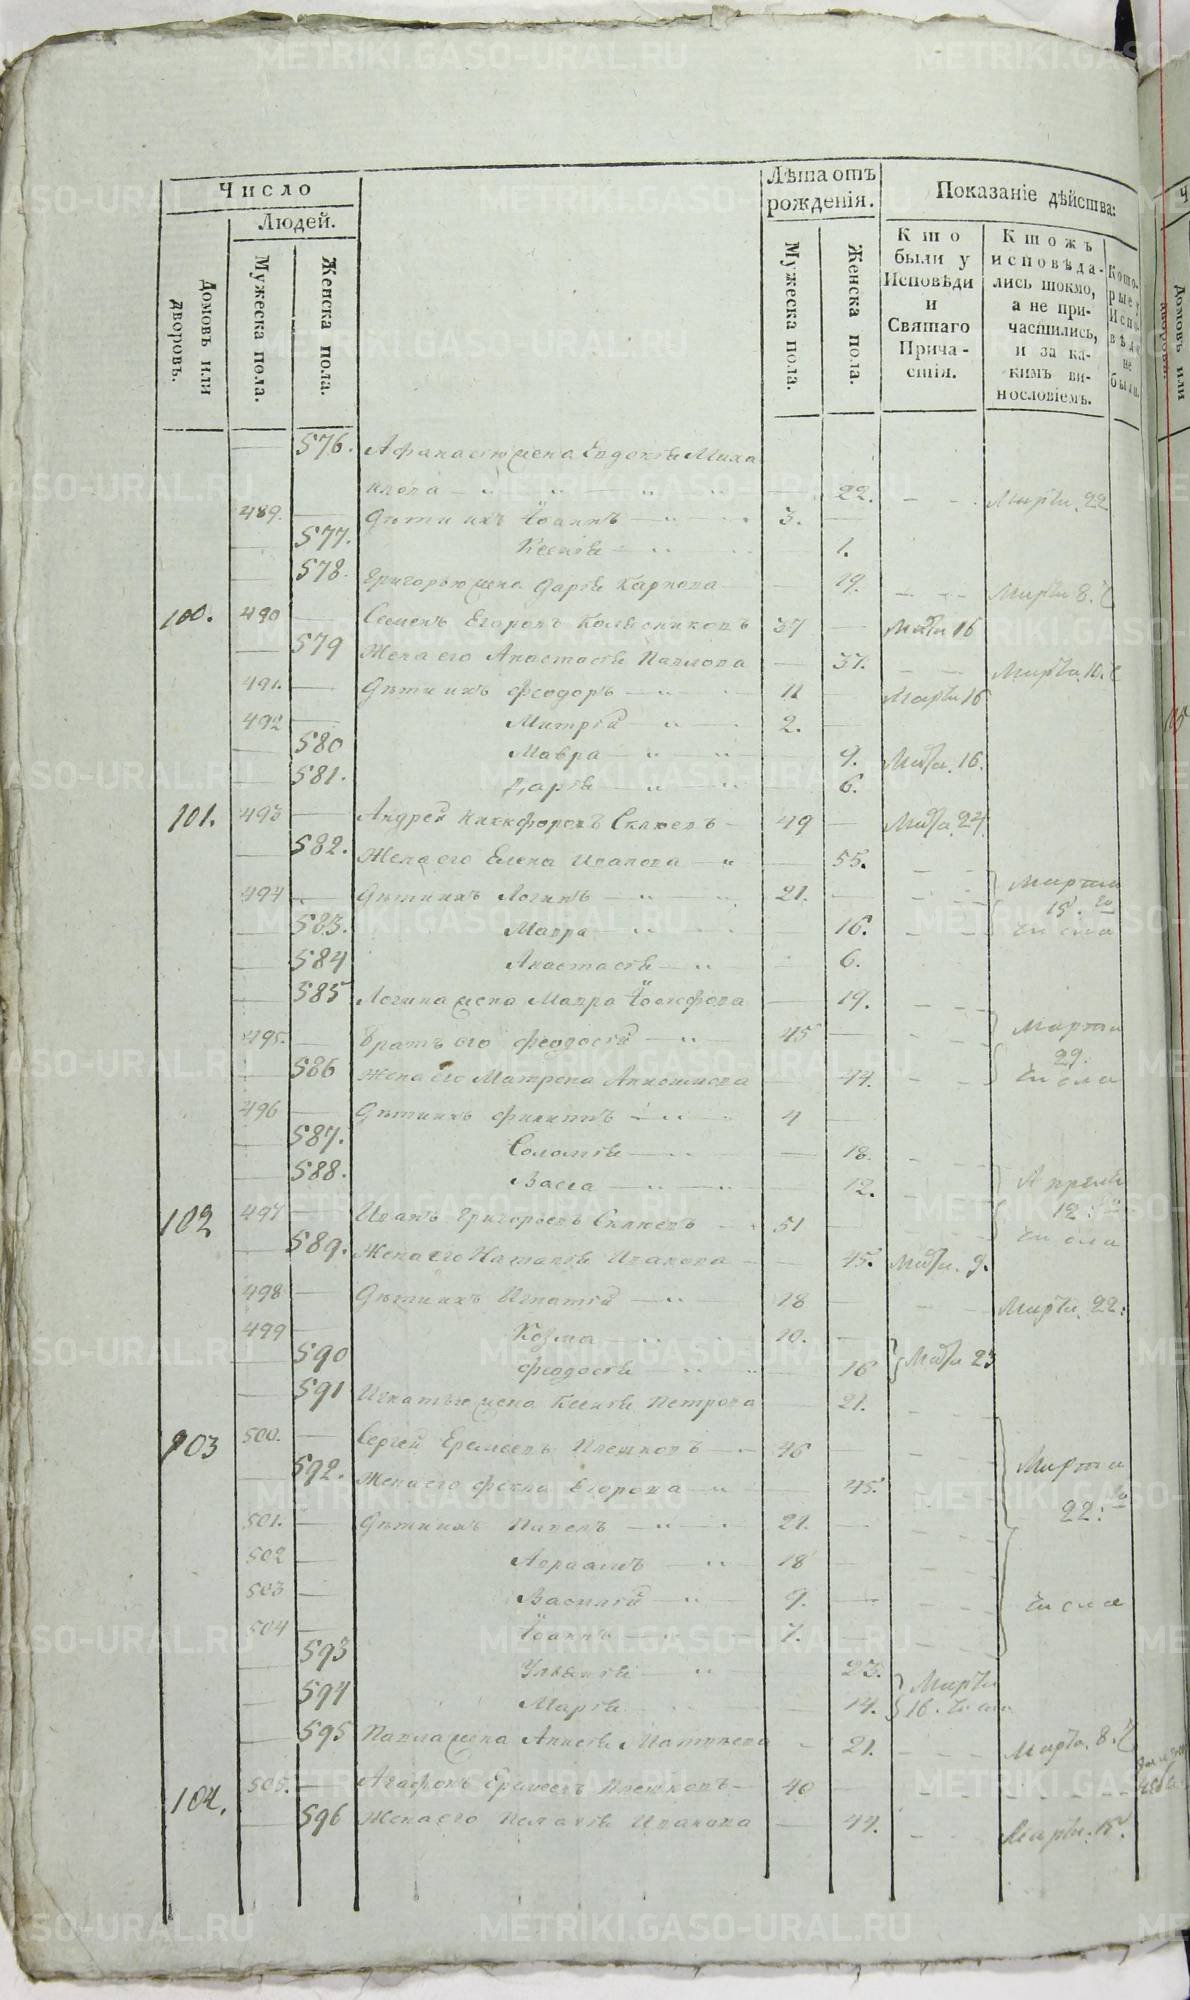 Число
Людей.
Домовъ или дворовъ.
Мужеска пола.
Женска пола.
Лѣта отъ рожденія.
Мужеска пола.
Женска пола.
Показаніе дѣйства:
Кто были у Исповѣди и Святаго Причастія.
Кто жъ исповѣдались токмо, а не причастились, и за какимъ винословіемъ.
Которые у Исповѣди не были.
576. Афанасію жена Евдокія Миха
илова 22. Марта 22
489. Дѣти ихъ Іоаннъ 3.
577. Ксенія 1.
578. Григорью жена Дарія Карпова 19. Марта 8.
100. 490 Семенъ Егоровъ Колѣсниковъ 37 Марта 16
579 Жена его Анастасія Павлова 37. Марта 10.
491. Дѣти ихъ Феодоръ 11 Марта 16
492 Митрій 2.
580 Мавра 9. Марта 16.
581. Дарія 6.
101. 493 Андрей Никифоровъ Склюевъ 49 Марта 24.
582. Жена его Елена Иванова 55.
494 Дѣти ихъ Логинъ 21. Марта
583. Мавра 16. 15. го числа
584 Анастасія 6.
585 Логина жена Мавра Іосифова 19.
495. Братъ его Феодосій 45 Марта
586 Жена его Матрона Анисимова 44. 29. числа
496 Дѣти ихъ Филиппъ 4
587. Соломія 18.
588. Васса 12. Апреля
102 497 Иванъ Григорьевъ Склюевъ 51 12. го числа
589. Жена его Наталія Иванова 45. Марта. 9.
498 Дѣти ихъ Игнатій 18 Марта. 22.
499 Козма 10.
590 Феодосія 16 Марта 23
591 Игнатью жена Ксенія Петрова 21.
103 500. Сергей Еремеевъ Плешковъ 46 Марта
592. Жена его Фекла Егорова 45.
501. Дѣти ихъ Павелъ 21. 22. го
502 Авраамъ 18
503 Василій 9. числа
504 Іоаннъ 7.
593 Ульянія 23. Марта
594 Марія 14. 16. числа
595 Павла жена Анисія Матвѣева 21. Марта. 8.
104. 505. Агафонъ Еремеевъ Плешковъ 40
596 Жена его Пелагія Иванова 44. Марта. 15.